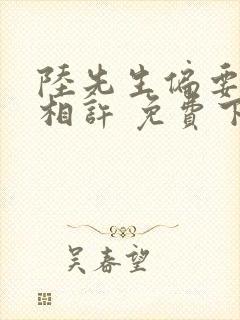 陸先生偏要
相許 免費下
吴春望